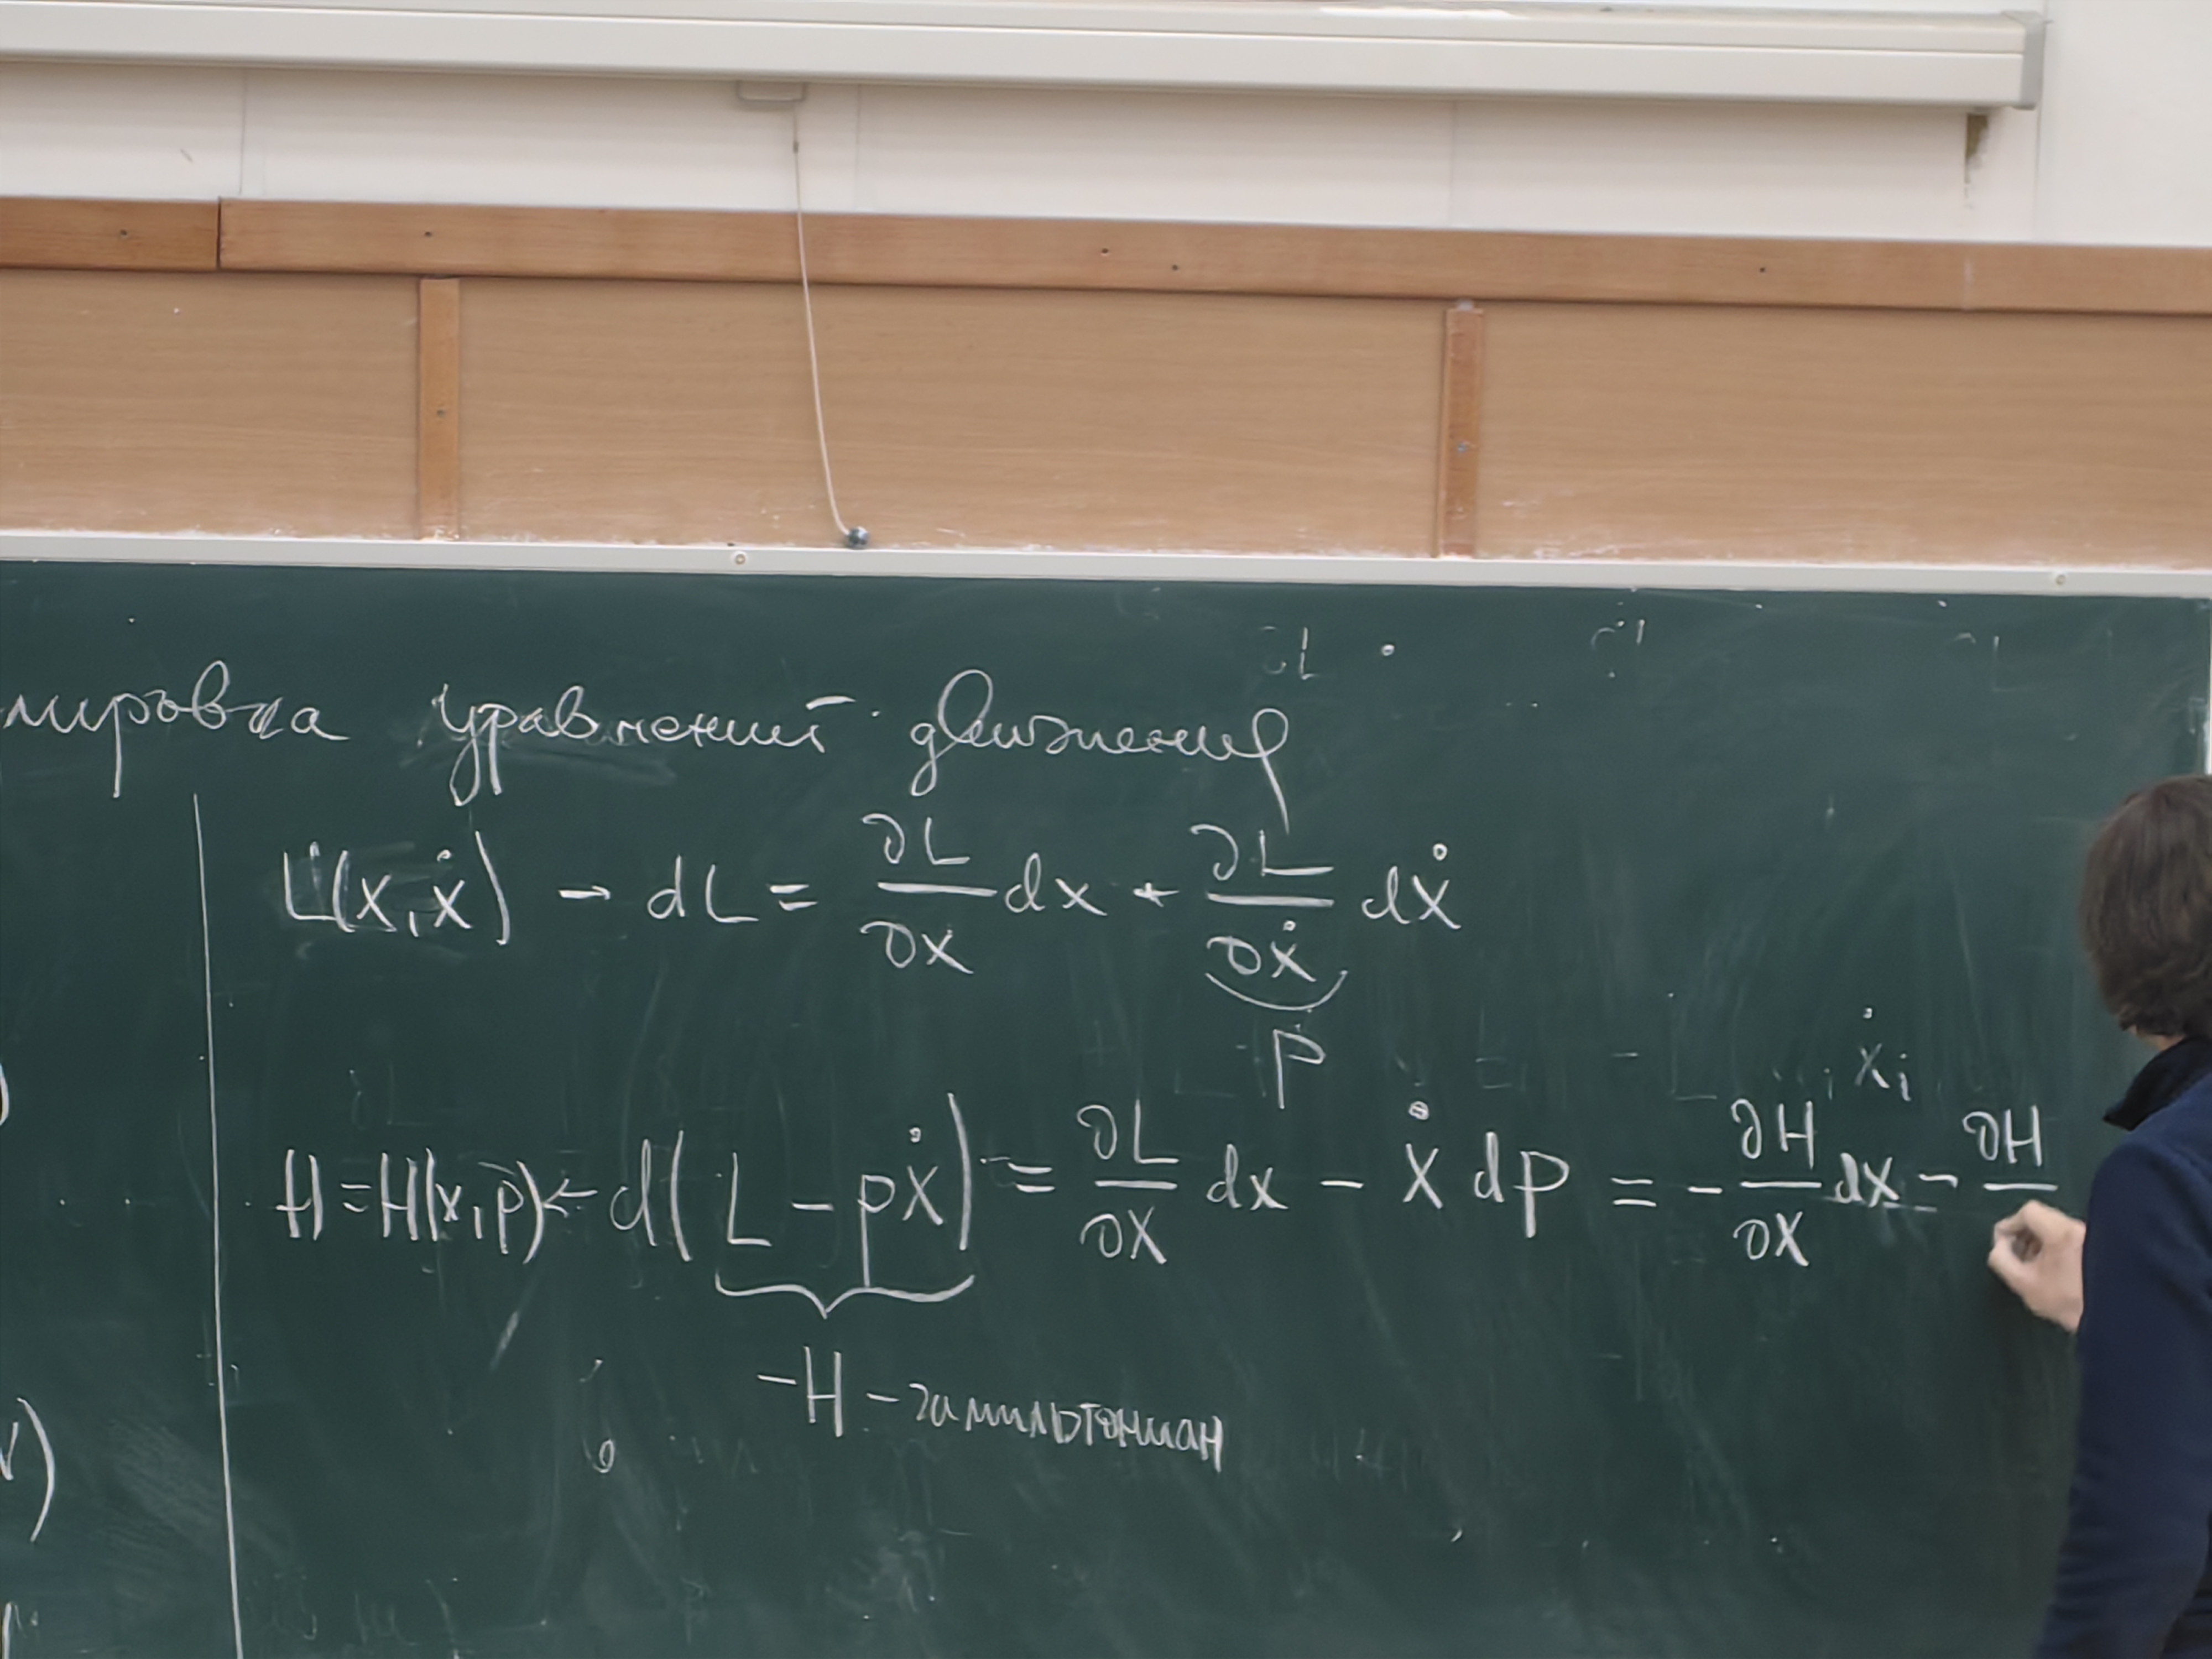 мировка уравнений движения
L(x, ẋ) → dL = ∂L/∂x dx + ∂L/∂ẋ dẋ
p
ẋᵢ
H = H(x, p) ← d(L − pẋ) = ∂L/∂x dx − ẋ dp = − ∂H/∂x dx − ∂H
−H − гамильтониан